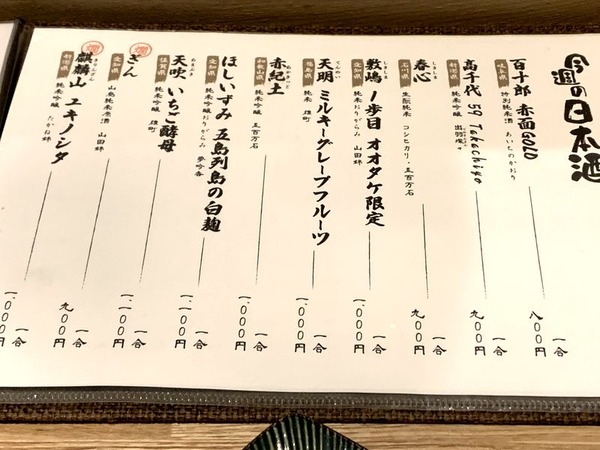 今週の日本酒
百十郎 赤面GOLD
岐阜県 特別純米酒 あいちのかおり
一合 八〇〇円
高千代 59 Takachiyo
新潟県 純米吟醸
一合 九〇〇円
春心
石川県 生酛純米 コシヒカリ・五百万石
一合 九〇〇円
敷嶋 1歩目 オオタケ限定
愛知県 純米おりがらみ 山田錦
一合 一、〇〇〇円
天明 ミルキーグレープフルーツ
福島県 純米 雄町
一合 一、〇〇〇円
赤紀土
和歌山県 純米吟醸 五百万石
一合 一、〇〇〇円
ほしいずみ 五島列島の白麹
愛知県 純米吟醸おりがらみ 夢吟香
一合 一、〇〇〇円
天吹 いちご酵母
佐賀県 純米吟醸 雄町
一合 一、一〇〇円
燗
ぎん
愛知県 山廃純米原酒 山田錦
一合 一、一〇〇円
燗
麒麟山 ユキノシタ
新潟県 純米吟醸 たかね錦
一合 九〇〇円
一合
一、〇〇〇円